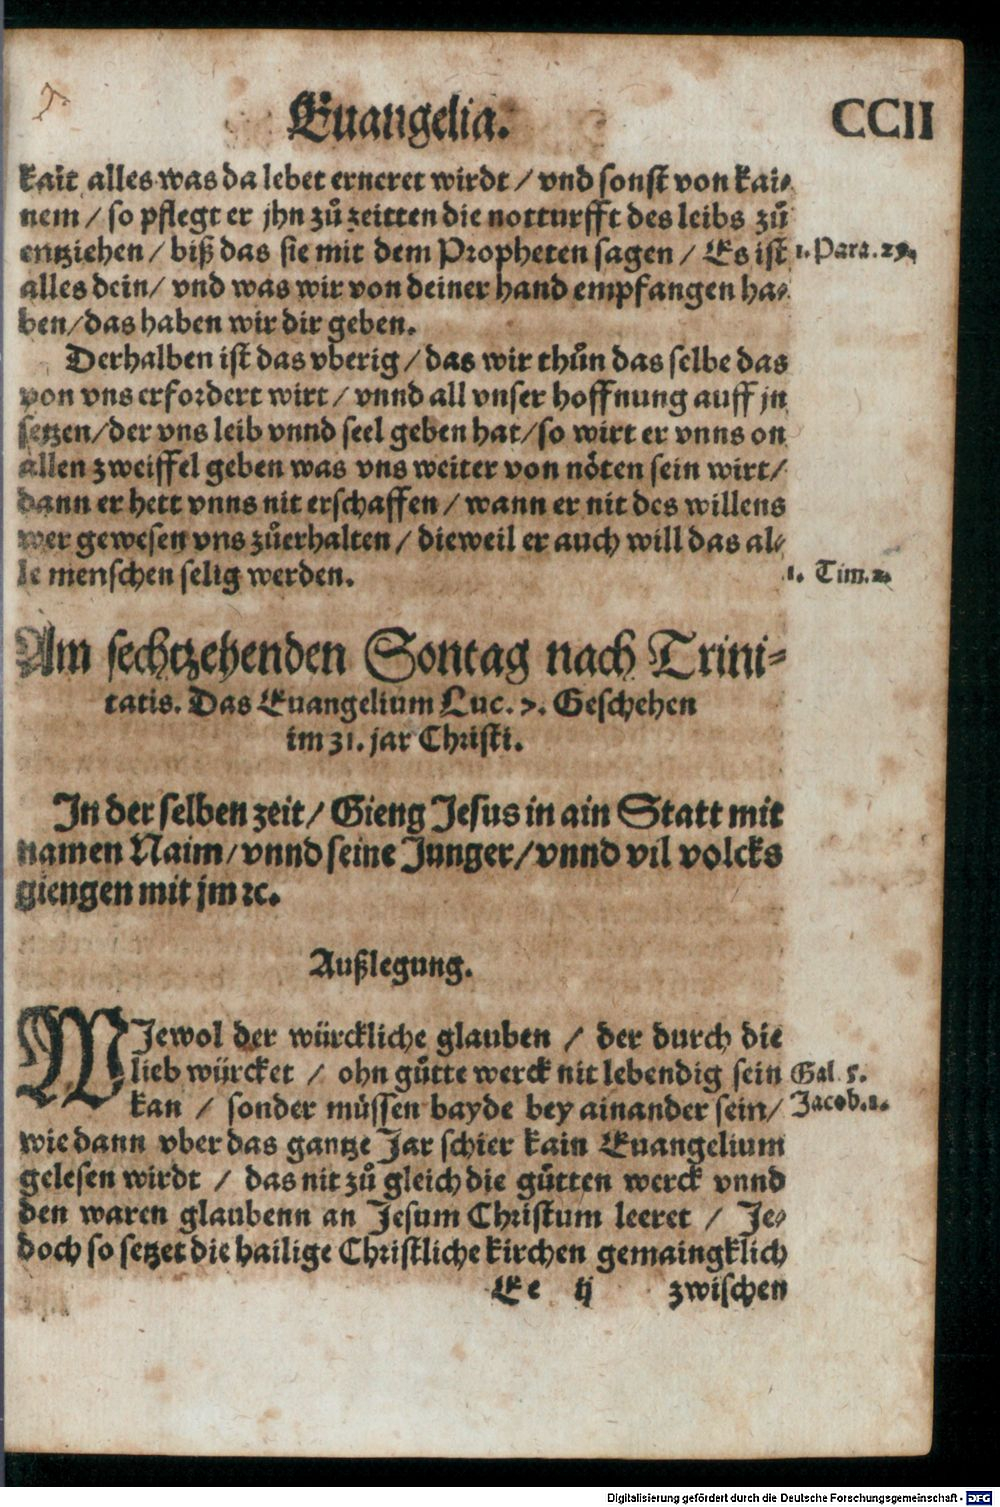 Euangelia. CCII
kait alles was da lebet erneret wirdt / vnd sonst von kai⸗
nem / so pflegt er jhn zů zeitten die notturfft des leibs zů
entziehen / biß das sie mit dem Propheten sagen / Es ist
1. Para. 29.
alles dein / vnd was wir von deiner hand empfangen ha⸗
ben / das haben wir dir geben.
Derhalben ist das vberig / das wir thůn das selbe das
von vns erfordert wirt / vnnd all vnser hoffnung auff jn
setzen / der vns leib vnnd seel geben hat / so wirt er vnns on
allen zweiffel geben was vns weiter von nöten sein wirt /
dann er hett vnns nit erschaffen / wann er nit des willens
wer gewesen vns zůerhalten / dieweil er auch will das al⸗
le menschen selig werden.
1. Tim. 2.
Am sechtzehenden Sontag nach Trini⸗
tatis. Das Euangelium Luc. 7. Geschehen
im 31. jar Christi.
In der selben zeit / Gieng Jesus in ain Statt mit
namen Naim / vnnd seine Junger / vnnd vil volcks
giengen mit jm ꝛc.
Außlegung.
WJewol der würckliche glauben / der durch die
lieb würcket / ohn gůtte werck nit lebendig sein
Gal. 5.
kan / sonder müssen bayde bey ainander sein /
Jacob. 2.
wie dann vber das gantze Jar schier kain Euangelium
gelesen wirdt / das nit zů gleich die gůtten werck vnnd
den waren glaubenn an Jesum Christum leeret / Je⸗
doch so setzet die hailige Christliche kirchen gemaingklich
Ee ij zwischen
Digitalisierung gefördert durch die Deutsche Forschungsgemeinschaft - DFG